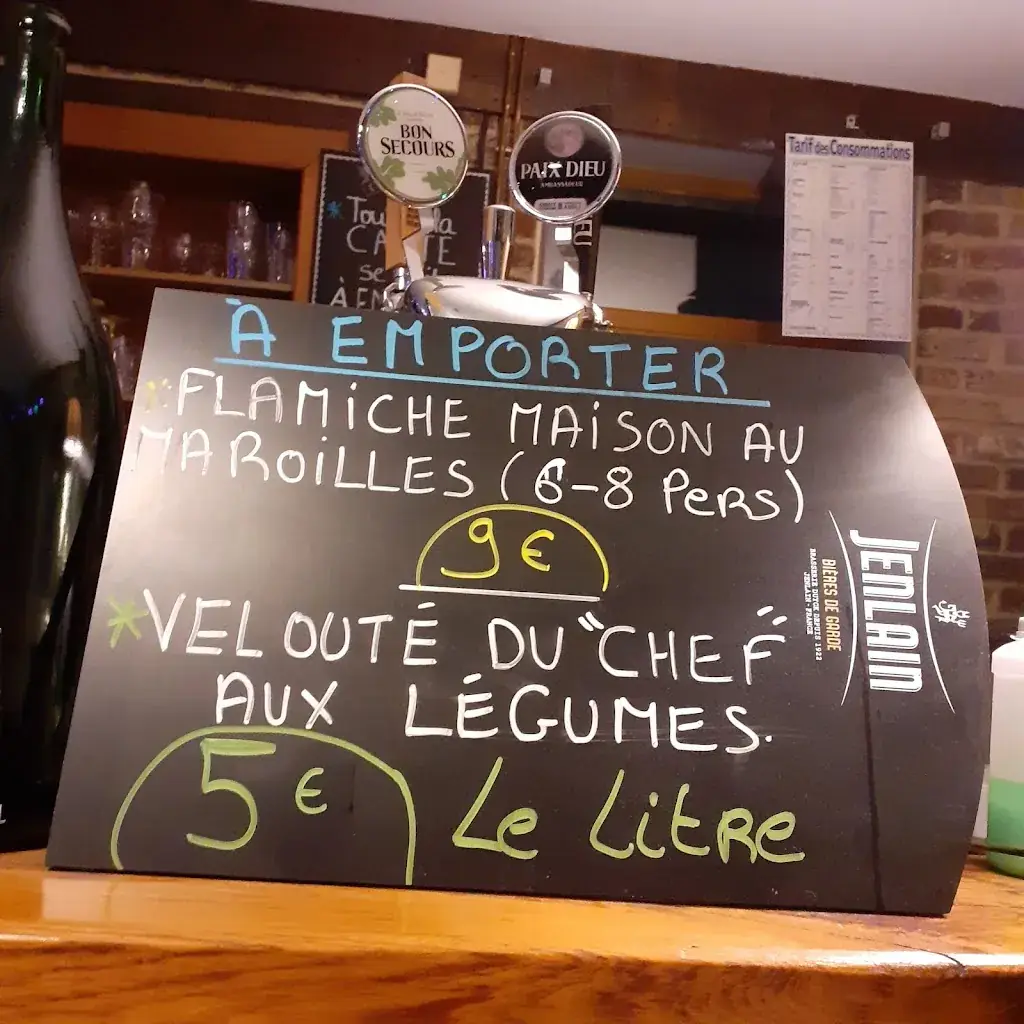 BON
SECOURS
PAIX DIEU
Tarif des Consommations
la
CARTE
se
À EM
À EMPORTER
*FLAMiCHE MAiSON AU
MAROiLLES (6-8 Pers)
9€
*VELOUTÉ DU "CHEF"
AUX LÉGUMES.
5€ Le Litre
JENLAIN
BIÈRES DE GARDE
BRASSERIE DUYCK DEPUIS 1922
JENLAIN - FRANCE